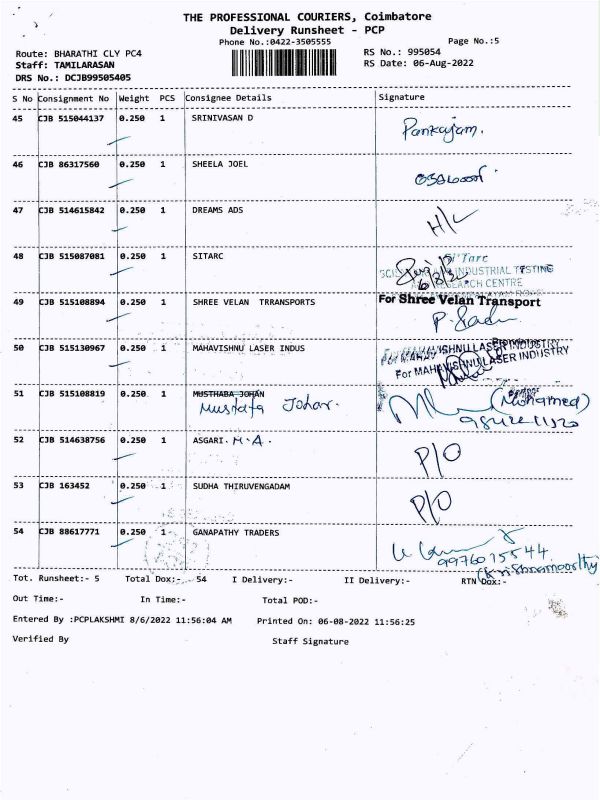 THE PROFESSIONAL COURIERS, Coimbatore
Delivery Runsheet - PCP
Phone No.:0422-3505555
Page No.:5
Route: BHARATHI CLY PC4
RS No.: 995054
Staff: TAMILARASAN
RS Date: 06-Aug-2022
DRS No.: DCJB99505405
S No Consignment No Weight PCS Consignee Details Signature
45 CJB 515044137 0.250 1 SRINIVASAN D Pankajam.
46 CJB 86317560 0.250 1 SHEELA JOEL
47 CJB 514615842 0.250 1 DREAMS ADS H/L
48 CJB 515087081 0.250 1 SITARC
Si'Tarc
INDUSTRIAL TESTING
RESEARCH CENTRE
49 CJB 515108894 0.250 1 SHREE VELAN TRRANSPORTS For Shree Velan Transport
50 CJB 515130967 0.250 1 MAHAVISHNU LASER INDUS
For MAHAVISHNU LASER INDUSTRY
For MAHAVISHNU LASER INDUSTRY
51 CJB 515108819 0.250 1 MUSTHABA JOHAN
Mustafa Johar. (Mohamed)
52 CJB 514638756 0.250 1 ASGARI. M.A. P/O
53 CJB 163452 0.250 1 SUDHA THIRUVENGADAM P/O
54 CJB 88617771 0.250 1 GANAPATHY TRADERS
9976015544
(Krishnamoorthy)
Tot. Runsheet:- 5 Total Dox:- 54 I Delivery:- II Delivery:- RTN Dox:-
Out Time:- In Time:- Total POD:-
Entered By :PCPLAKSHMI 8/6/2022 11:56:04 AM Printed On: 06-08-2022 11:56:25
Verified By Staff Signature